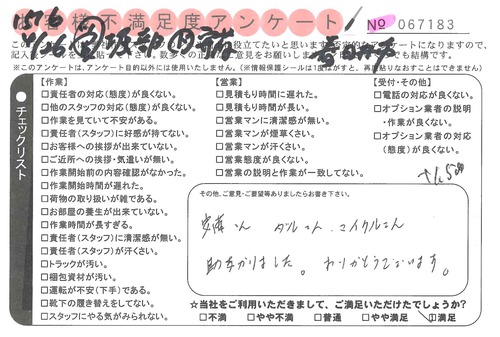 お客様不満足度アンケート
No 067183
記入
※このアンケートは、アンケート目的以外には使用いたしません。(※情報保護シールは1度はがすと、再度貼りなおすことはできません)
チェックリスト
【作業】
□責任者の対応(態度)が良くない。
□他のスタッフの対応(態度)が良くない。
□作業を見ていて不安がある。
□責任者(スタッフ)に好感が持てない。
□お客様への挨拶が出来ていない。
□ご近所への挨拶・気遣いが無い。
□作業開始前の内容確認がなかった。
□作業開始時間が遅れた。
□荷物の取り扱いが雑である。
□お部屋の養生が出来ていない。
□作業時間が長すぎる。
□責任者(スタッフ)に清潔感が無い。
□責任者(スタッフ)が汗くさい。
□トラックが汚い。
□梱包資材が汚い。
□運転が不安(下手)である。
□靴下の履き替えをしてない。
□スタッフにやる気がみられない。
【営業】
□見積もり時間に遅れた。
□見積もり時間が長い。
□営業マンに清潔感が無い。
□営業マンが煙草くさい。
□営業マンが汗くさい。
□営業態度が良くない。
□営業の説明と作業が一致してない。
【受付・その他】
□電話の対応が良くない。
□オプション業者の説明
・作業が良くない。
□オプション業者の対応
(態度)が良くない。
その他、ご意見・ご要望等ありましたらお書き下さい。
安藤さん ダルさん、マイケルさん
助かりました。ありがとうございます。
☆当社をご利用いただきまして、ご満足いただけたでしょうか?
□不満 □やや不満 □普通 □やや満足 □満足